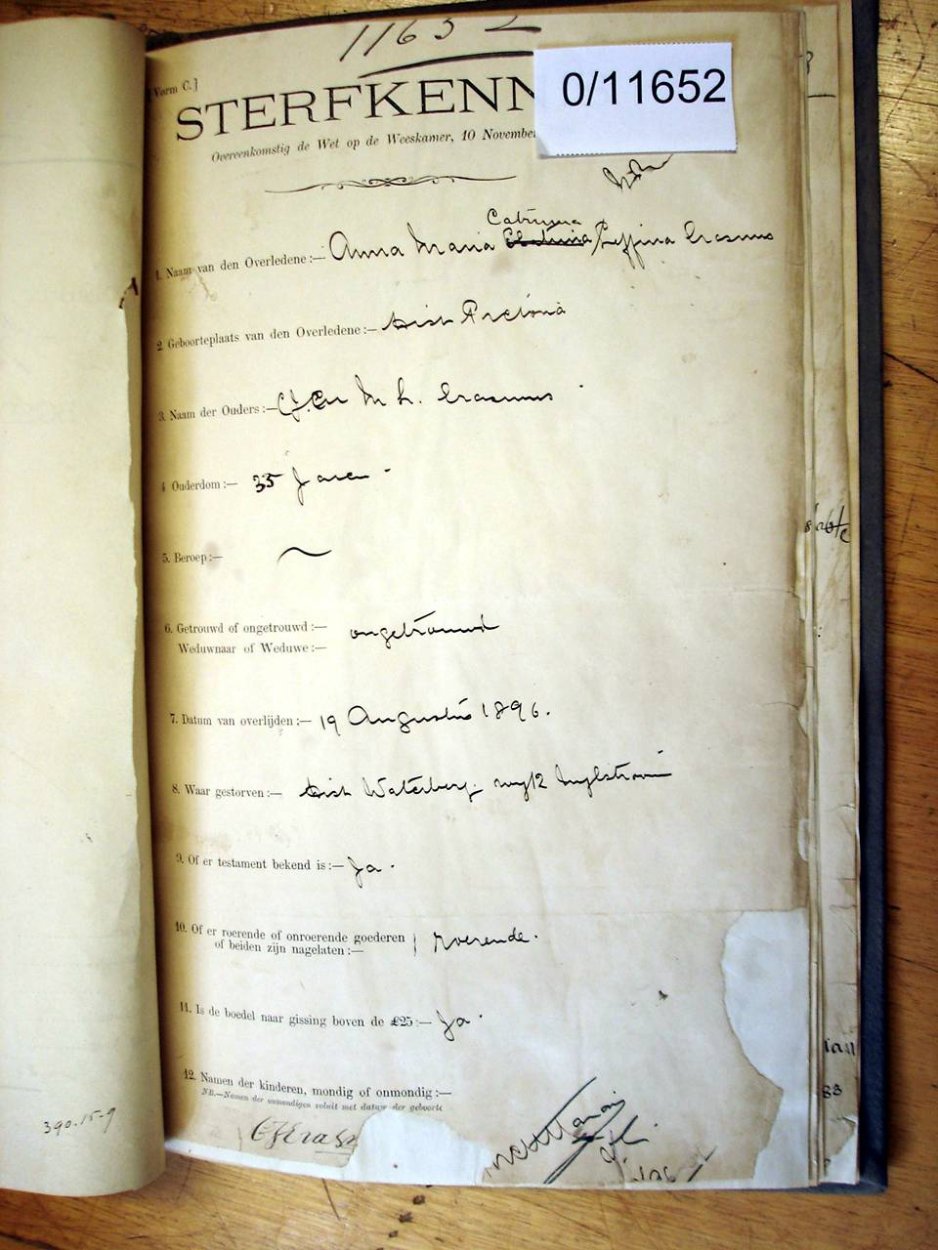 11652
0/11652
[Vorm C.]
STERFKENN
Overeenkomstig de Wet op de Weeskamer, 10 November
Catrina
1. Naam van den Overledene:— Anna Maria Erasmus
2. Geboorteplaats van den Overledene:— Dist Pretoria
3. Naam der Ouders:— Erasmus
4. Ouderdom:— 35 Jaren
5. Beroep:— ~
6. Getrouwd of ongetrouwd:— ongetrouwd
Weduwnaar of Weduwe:—
7. Datum van overlijden:— 19 Augustus 1896.
8. Waar gestorven:— Dist Waterberg. wyk Nylstroom
9. Of er testament bekend is:— Ja.
10. Of er roerende of onroerende goederen
of beiden zijn nagelaten:— } roerende.
11. Is de boedel naar gissing boven de £25:— Ja.
12. Namen der kinderen, mondig of onmondig:—
NB.—Namen der onmondigen voluit met datum der geboorte
390.15-9